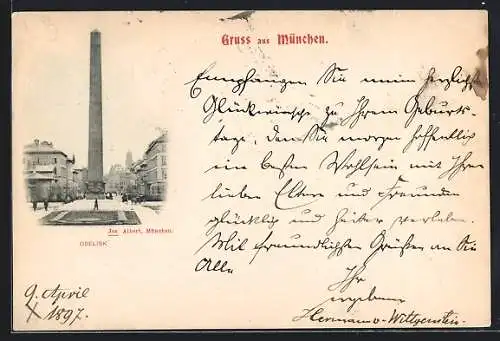 Gruss aus München.
Empfangen Sie meine herzlichsten
Glückwünsche zu Ihrem Geburts-
tage, den Sie morgen hoffentlich
in bestem Wohlsein mit Ihren
lieben Eltern und Freunden
glücklich und heiter verleben.
Mit freundlichsten Grüßen an Sie
Alle
Ihr
ergebener
Hermann v. Wittgenstein.
Jos. Albert, München.
OBELISK
9. April
1897.